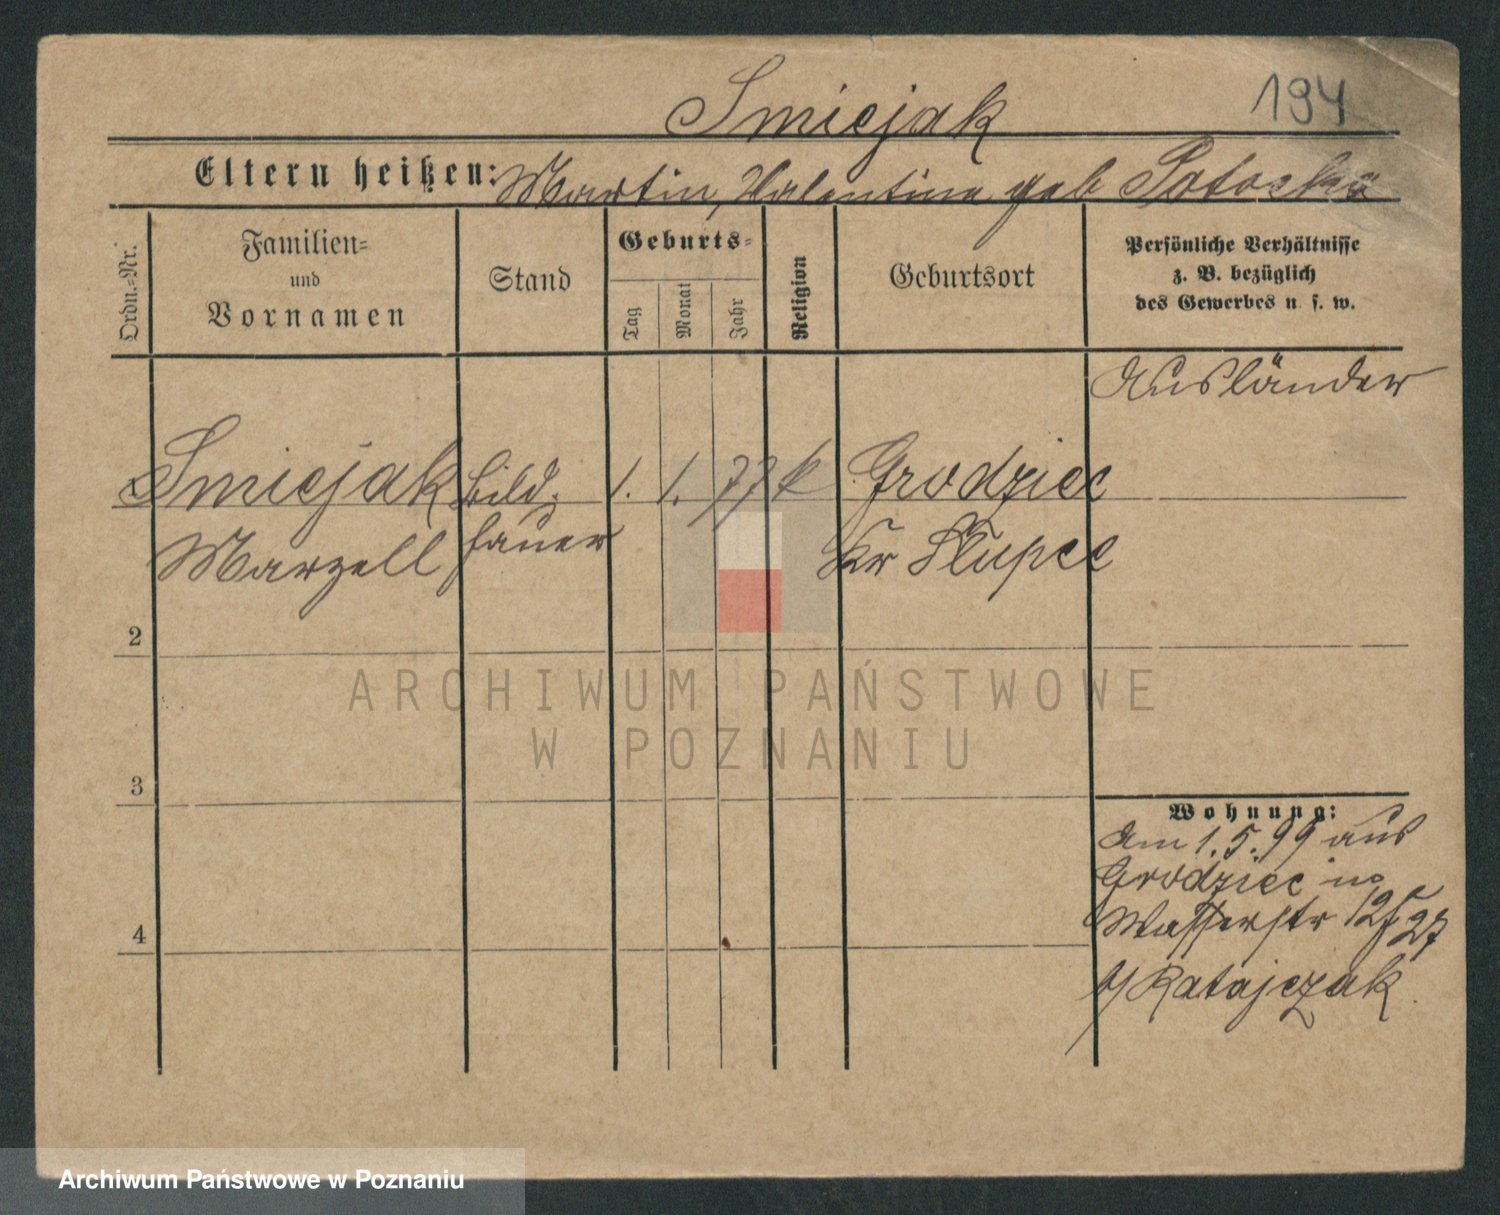 Smiejak
194
Eltern heißen: Martin, Valentina geb Potocka
Ordn.-Nr.
Familien-
und
Vornamen
Stand
Geburts-
Tag
Monat
Jahr
Religion
Geburtsort
Persönliche Verhältnisse
z. B. bezüglich
des Gewerbes u. s. w.
Ausländer
1 Smiejak Bild- 1. 1. 77 k Grodziec
Marzell hauer Kr Slupce
2
3
4
Wohnung:
Am 1.5.99 aus
Grodziec in
Wasserstr 27
b/ Ratajczak
ARCHIWUM PAŃSTWOWE
W POZNANIU
Archiwum Państwowe w Poznaniu